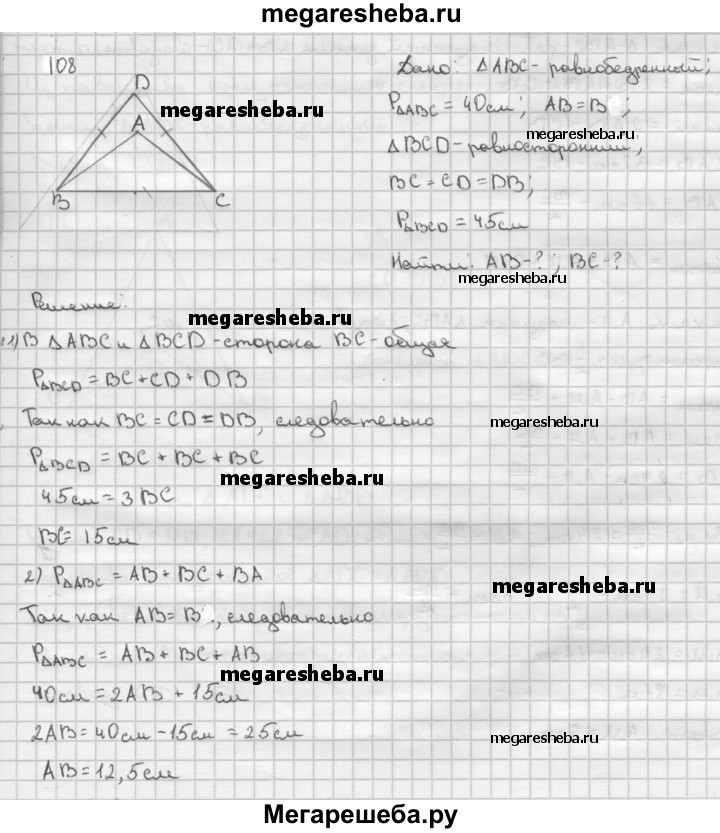 megaresheba.ru
108
D
A
B
C
megaresheba.ru
Дано: ΔABC - равнобедренный;
P ΔABC = 40 см; AB = B ;
megaresheba.ru
ΔBCD - равносторонний;
BC = CD = DB;
P ΔBCD = 45 см
Найти: AB - ?; BC - ?
megaresheba.ru
Решение:
megaresheba.ru
1) В ΔABC и ΔBCD - сторона BC - общая
P ΔBCD = BC + CD + DB
Так как BC = CD = DB, следовательно
megaresheba.ru
P ΔBCD = BC + BC + BC
megaresheba.ru
45 см = 3 BC
BC = 15 см
2) P ΔABC = AB + BC + BA
megaresheba.ru
Так как AB = B , следовательно
P ΔABC = AB + BC + AB
megaresheba.ru
40 см = 2AB + 15 см
2AB = 40 см - 15 см = 25 см
megaresheba.ru
AB = 12,5 см
Мегарешеба.ру